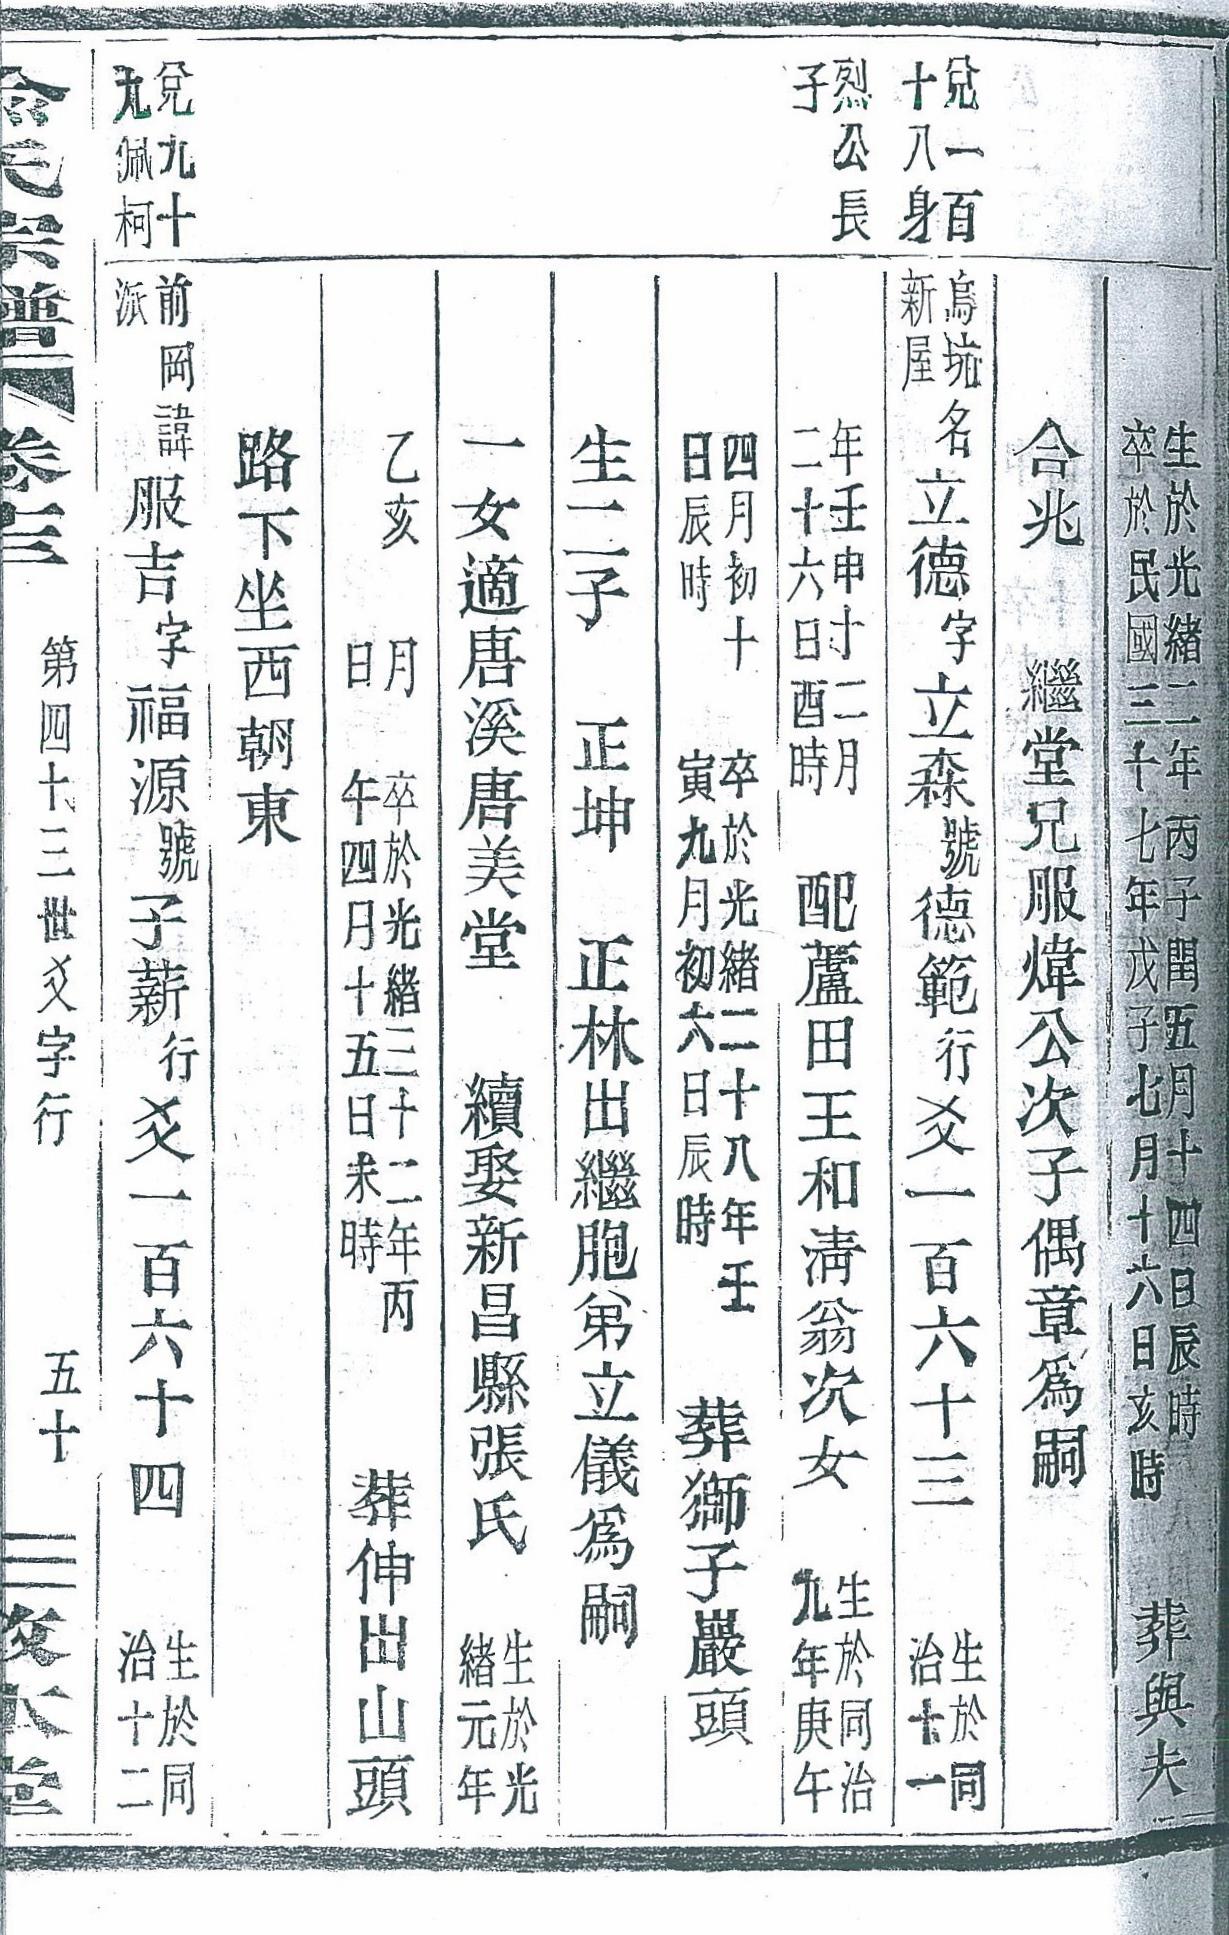 生於光緒二年丙子閏五月十四日辰時
卒於民國三十七年戊子七月十六日亥時
葬與夫
合兆　繼堂兄服煒公次子偶章爲嗣
兌一百
十八身
烏坑
新屋
名立德字立森號德範行爻一百六十三
生於同
治十一
烈公長
子
年壬申十二月
二十六日酉時
配蘆田王和淸翁次女
生於同治
九年庚午
四月初十
日辰時
卒於光緒二十八年壬
寅九月初六日辰時
葬獅子巖頭
生二子　正坤　正林出繼胞弟立儀爲嗣
一女適唐溪唐美堂　續娶新昌縣張氏
生於光
緒元年
乙亥　月
日
卒於光緒三十二年丙
午四月十五日未時
葬伸出山頭
路下坐西朝東
兌九十
九佩柯
前岡
派
諱服吉字福源號子薪行爻一百六十四
生於同
治十二
氏宗譜
卷三
第四十三世爻字行
五十
本堂